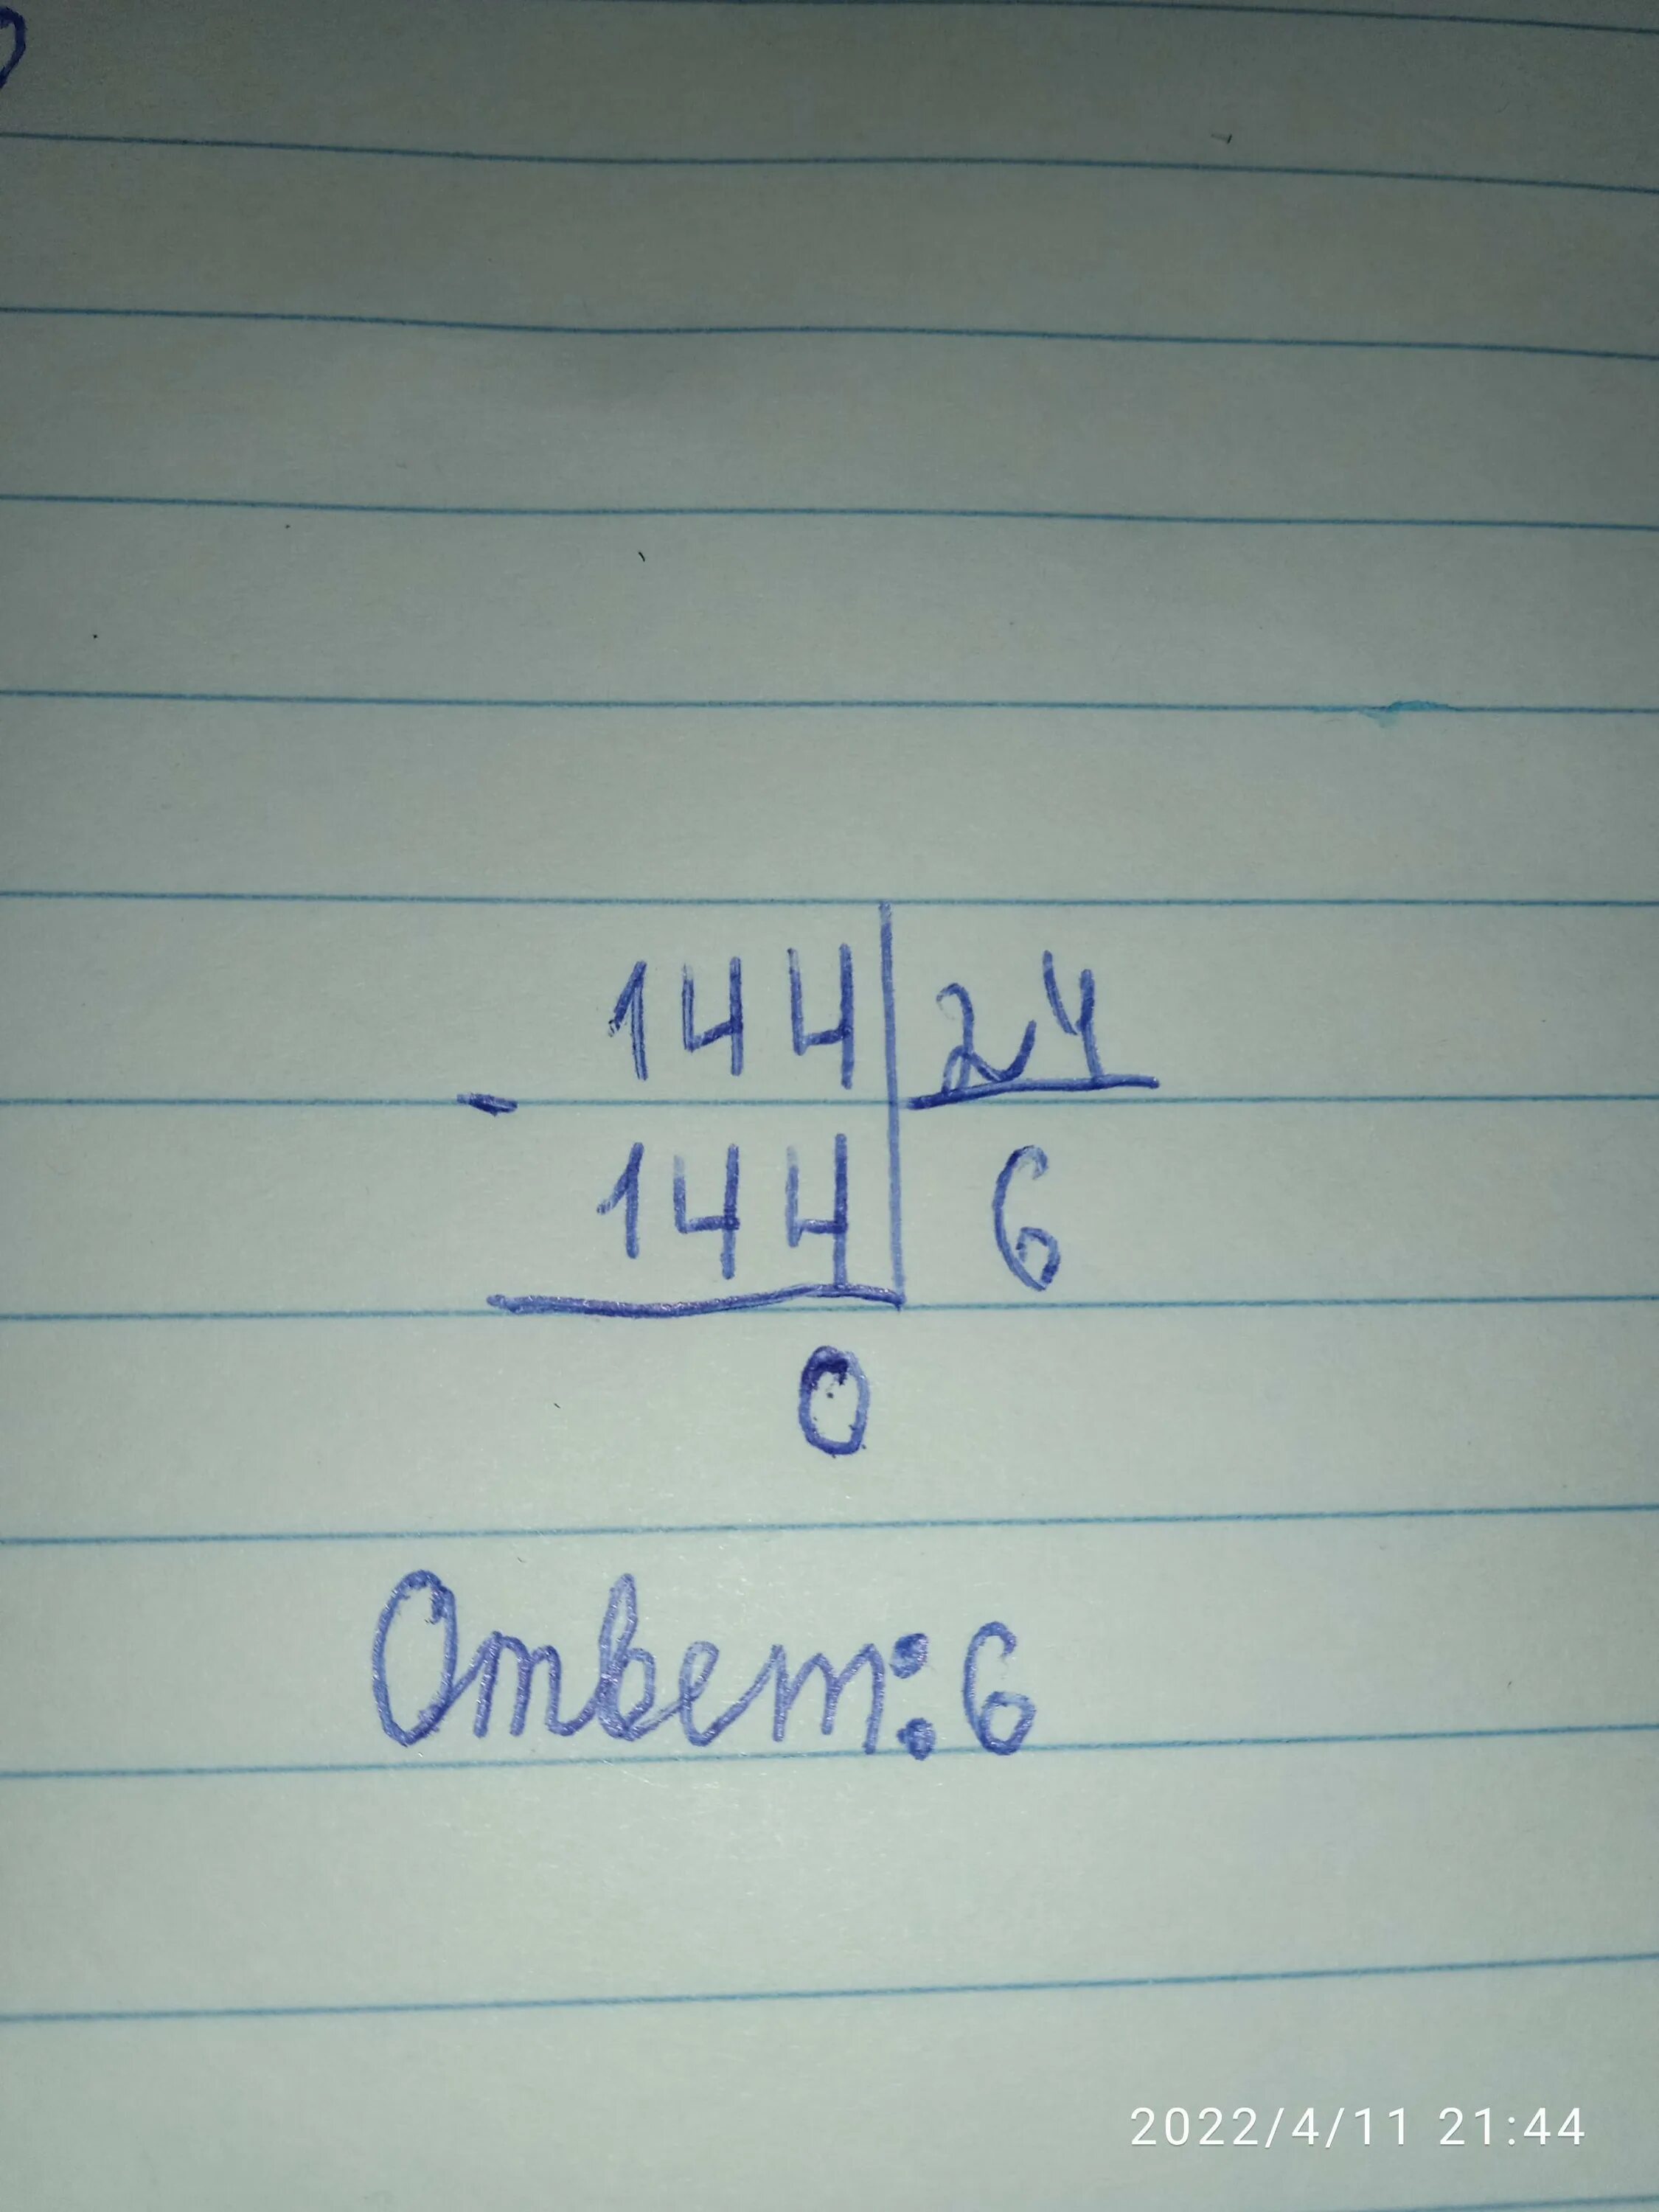 144 | 24
- 144 | 6
0
Ответ: 6
2022/4/11 21:44